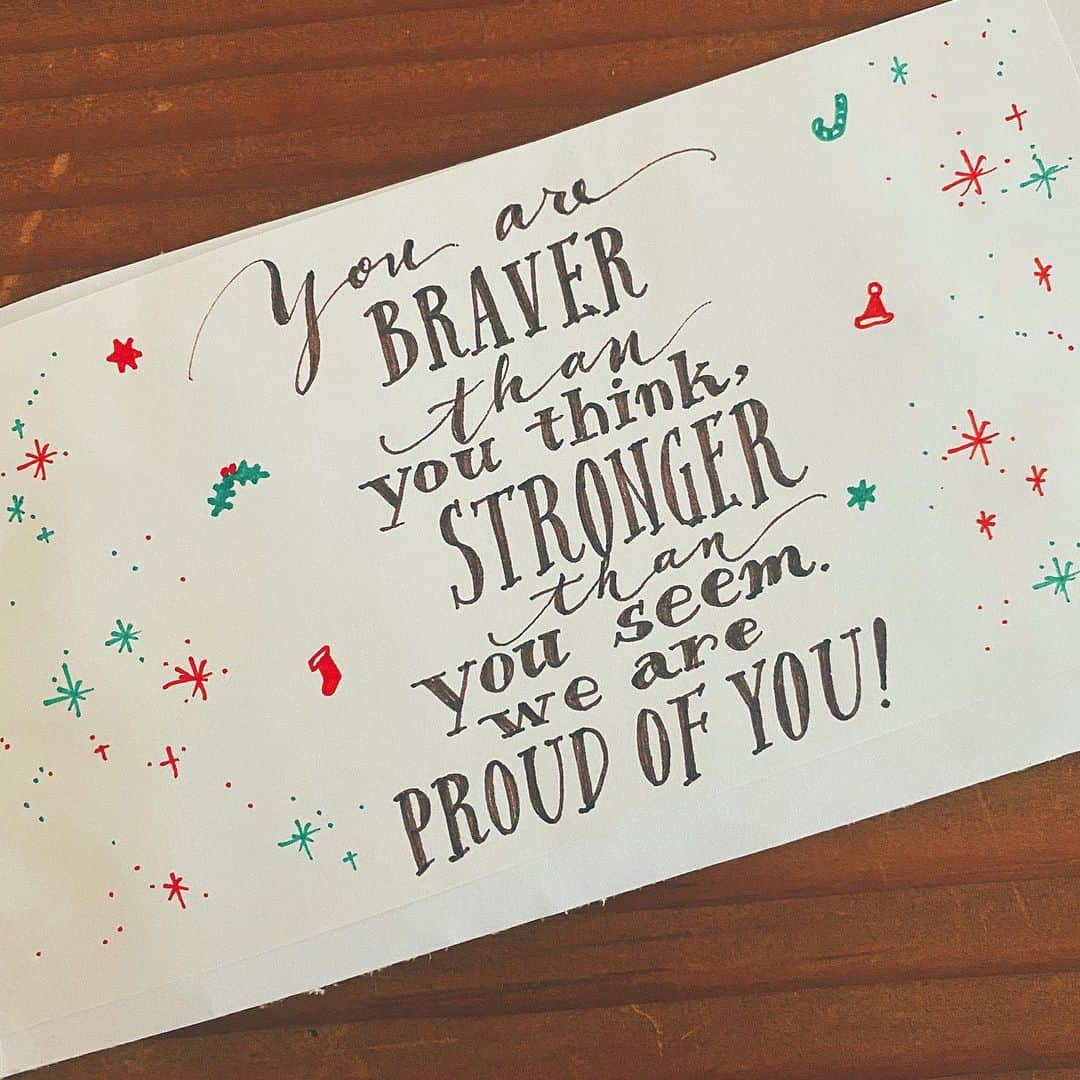 You are
BRAVER
than
you think,
STRONGER
than
you seem.
we are
PROUD OF YOU!